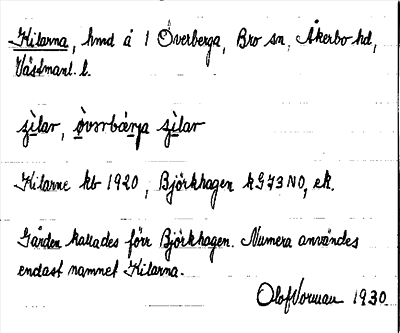 Kilarna, hmd å 1 Överberga, Bro sn, Åkerbo hd,
Västmanl. l.
ɕìlar, ö̀vərbærja ɕìlar
Kilarne kb 1920, Björkhagen k G73 NO, ek.
Gården kallades förr Björkhagen. Numera användes
endast namnet Kilarna.
Olof Vorman 1930